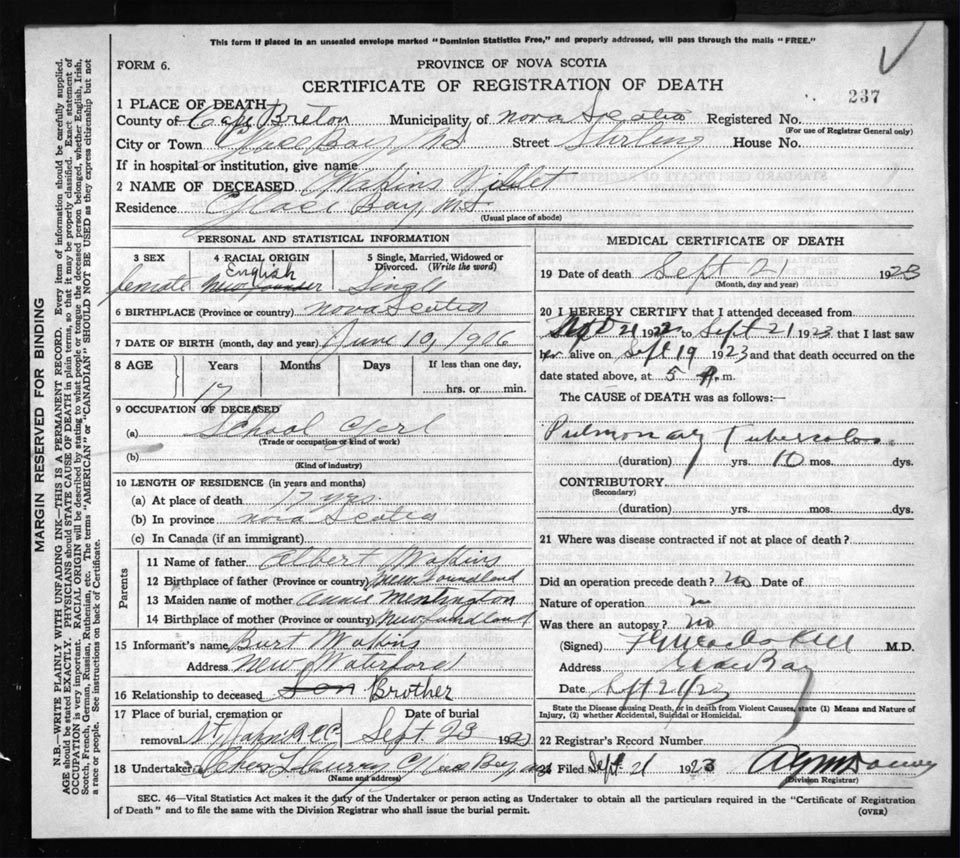 This form if placed in an unsealed envelope marked "Dominion Statistics Free," and properly addressed, will pass through the mails "FREE."
FORM 6.
PROVINCE OF NOVA SCOTIA
CERTIFICATE OF REGISTRATION OF DEATH
237
1 PLACE OF DEATH
County of Cape Breton Municipality of Nova Scotia Registered No.
(For use of Registrar General only)
City or Town Glace Bay, NS Street Stirling House No.
If in hospital or institution, give name
2 NAME OF DECEASED Violet
Residence Glace Bay, NS
(Usual place of abode)
PERSONAL AND STATISTICAL INFORMATION
3 SEX 4 RACIAL ORIGIN 5 Single, Married, Widowed or Divorced. (Write the word)
female English Single
6 BIRTHPLACE (Province or country) Nova Scotia
7 DATE OF BIRTH (month, day and year) June 10, 1906
8 AGE Years Months Days If less than one day,
17 hrs. or min.
9 OCCUPATION OF DECEASED
(a) School Gerl
(Trade or occupation or kind of work)
(b)
(Kind of industry)
10 LENGTH OF RESIDENCE (in years and months)
(a) At place of death 17 yrs.
(b) In province Nova Scotia
(c) In Canada (if an immigrant)
Parents
11 Name of father Albert
12 Birthplace of father (Province or country) New Foundland
13 Maiden name of mother Annie
14 Birthplace of mother (Province or country) Newfoundland
15 Informant's name Burt
Address New Waterford
16 Relationship to deceased Son Brother
17 Place of burial, cremation or removal Date of burial
Sept 23 192
18 Undertaker Curry Glace Bay
(Name and address)
MEDICAL CERTIFICATE OF DEATH
19 Date of death Sept 21 1923
(Month, day and year)
20 I HEREBY CERTIFY that I attended deceased from
192 to Sept 21 1923 that I last saw
her alive on Sept 19 1923 and that death occurred on the
date stated above, at 5 A. m.
The CAUSE of DEATH was as follows:—
Pulmonary
(duration) yrs. 10 mos. dys.
CONTRIBUTORY
(Secondary)
(duration) yrs. mos. dys.
21 Where was disease contracted if not at place of death?
Did an operation precede death? no Date of
Nature of operation
Was there an autopsy? no
(Signed) M.D.
Address Glace Bay
Date Sept 21/23
State the Disease causing Death, or in death from Violent Causes, state (1) Means and Nature of
Injury, (2) whether Accidental, Suicidal or Homicidal.
22 Registrar's Record Number
Filed Sept 21 1923
(Division Registrar)
SEC. 46—Vital Statistics Act makes it the duty of the Undertaker or person acting as Undertaker to obtain all the particulars required in the "Certificate of Registration
of Death" and to file the same with the Division Registrar who shall issue the burial permit.
(OVER)
MARGIN RESERVED FOR BINDING
N.B.—WRITE PLAINLY WITH UNFADING INK—THIS IS A PERMANENT RECORD. Every item of information should be carefully supplied.
AGE should be stated EXACTLY. PHYSICIANS should STATE CAUSE OF DEATH in plain terms, so that it may be properly classified. Exact statement of
OCCUPATION is very important. RACIAL ORIGIN will be described by stating to what people or tongue the deceased person belonged, whether English, Irish,
Scotch, French, German, Russian, Ruthenian, etc. The terms "AMERICAN" or "CANADIAN" SHOULD NOT BE USED as they express citizenship but not
a race or people. See instructions on back of Certificate.